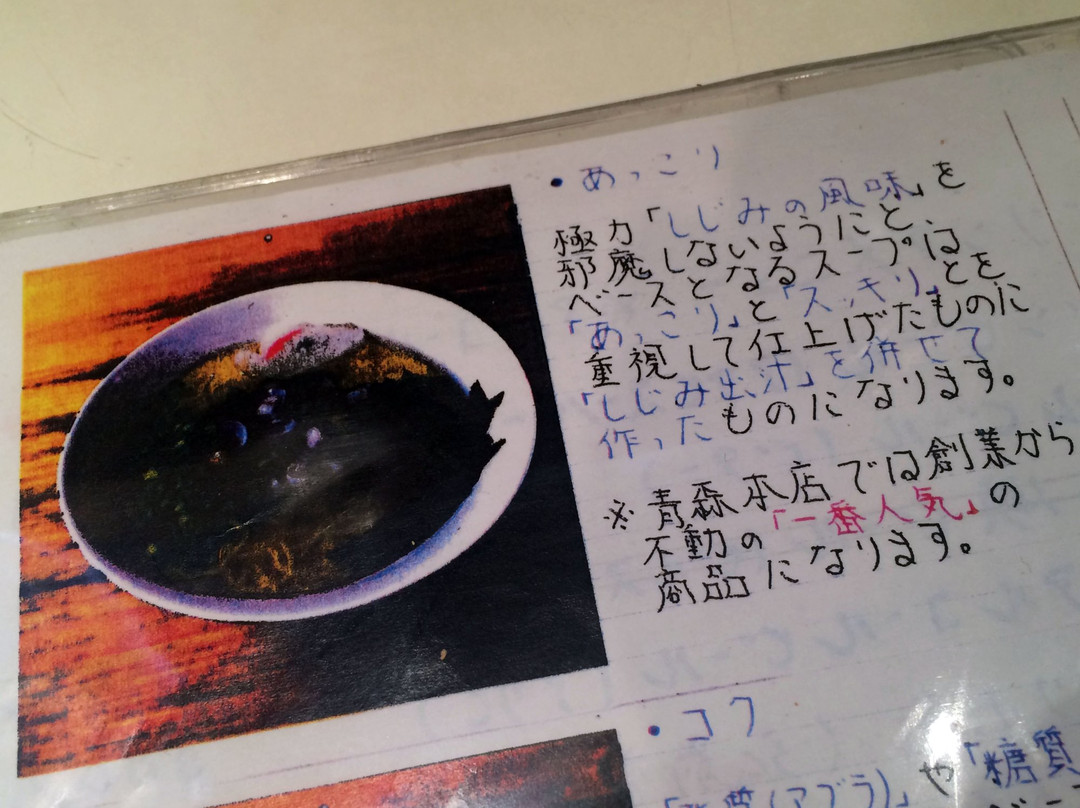 ・あっこり
極力「しじみの風味」を
邪魔しないようにと、
ベースとなるスープは
「あっこり」と「スッキリ」とを
重視して仕上げたものに
「しじみ出汁」を併せて
作ったものになります。
※青森本店では創業から
不動の「一番人気」の
商品になります。
・コク
(アブラ)」や「糖質